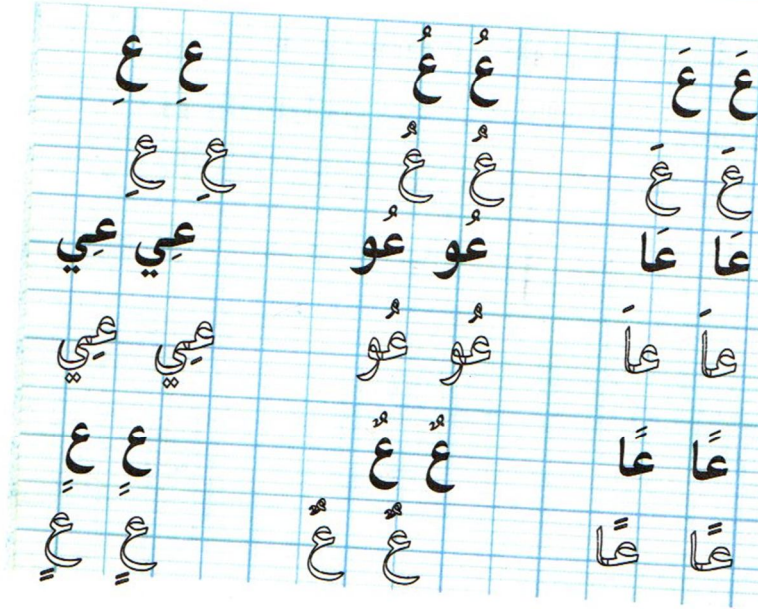 عَ عَ عُ عُ عِ عِ
عَ عَ عُ عُ عِ عِ
عَا عَا عُو عُو عِي عِي
عَا عَا عُو عُو عِي عِي
عًا عًا عٌ عٌ عٍ عٍ
عًا عًا عٌ عٌ عٍ عٍ